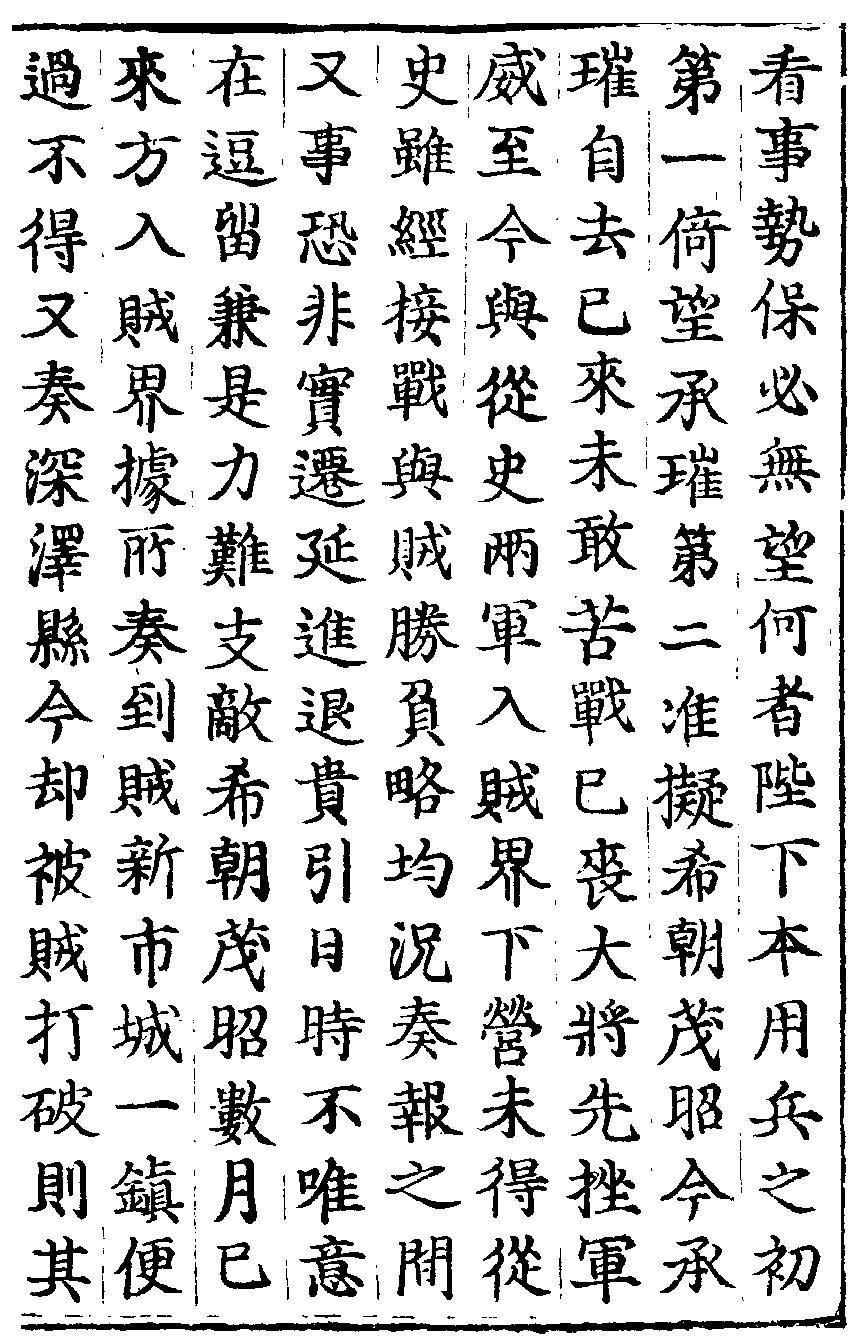 看事勢保必無望何者陛下本用兵之初
第一倚望承璀第二准擬希朝茂昭今承
璀自去已來未敢苦戰已喪大將先挫軍
威至今與從史兩軍入賊界下營未得從
史雖經接戰與賊勝負略均況奏報之間
又事恐非實遷延進退貴引日時不唯意
在逗留兼是力難支敵希朝茂昭數月已
來方入賊界據所奏到賊新市城一鎮便
過不得又奏深澤縣今却被賊打破則其